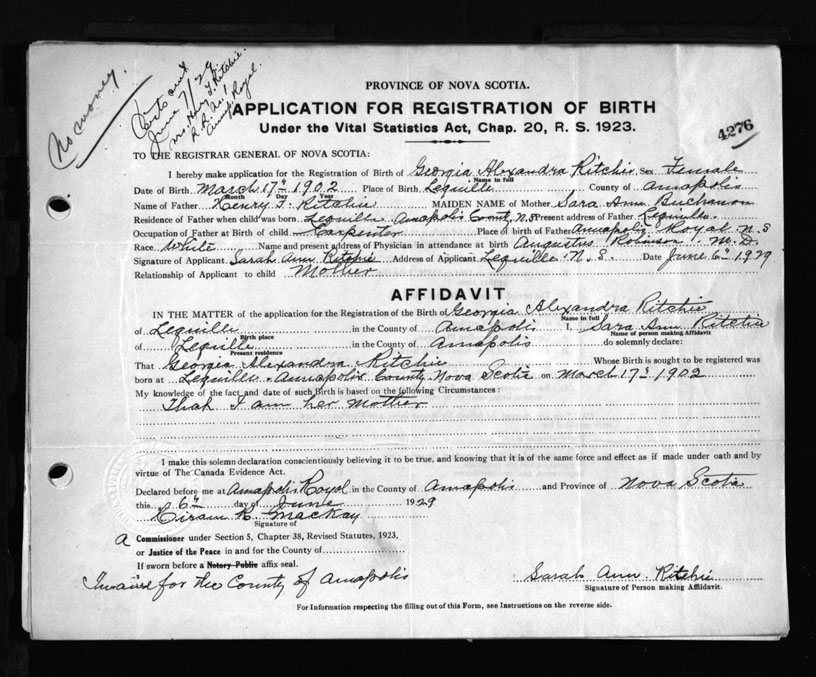 No money.
June 7/29
Mrs Henry T. Ritchie.
R.R. No 1
Annap. Royal.
PROVINCE OF NOVA SCOTIA.
APPLICATION FOR REGISTRATION OF BIRTH
Under the Vital Statistics Act, Chap. 20, R. S. 1923.
4276
TO THE REGISTRAR GENERAL OF NOVA SCOTIA:
I hereby make application for the Registration of Birth of Georgia Alexandra Ritchie Sex Female
Name in full
Date of Birth March 17th 1902 Place of Birth Lequille County of Annapolis
Month Day Year
Name of Father Henry T. Ritchie MAIDEN NAME of Mother Sara Ann Buchanan
Residence of Father when child was born Lequille Annapolis County N.S Present address of Father Lequille.
Occupation of Father at Birth of child Carpenter Place of birth of Father Annapolis Royal N.S
Race White Name and present address of Physician in attendance at birth Augustus Robinson M.D.
Signature of Applicant Sarah Ann Ritchie Address of Applicant Lequille N.S. Date June 6th 1929
Relationship of Applicant to child Mother
AFFIDAVIT
IN THE MATTER of the application for the Registration of the Birth of Georgia Alexandra Ritchie
Name in full
of Lequille in the County of Annapolis I, Sara Ann Ritchie
Birth place Name of person making Affidavit
of Lequille in the County of Annapolis do solemnly declare:
Present residence
That Georgia Alexandra Ritchie Whose Birth is sought to be registered was
born at Lequille Annapolis County Nova Scotia on March 17th 1902
My knowledge of the fact and date of such Birth is based on the following Circumstances:
That I am her Mother
I make this solemn declaration conscientiously believing it to be true, and knowing that it is of the same force and effect as if made under oath and by
virtue of The Canada Evidence Act.
Declared before me at Annapolis Royal in the County of Annapolis and Province of Nova Scotia
this 6th day of June 1929
Hiram K. Mackay
Signature of
a Commissioner under Section 5, Chapter 38, Revised Statutes, 1923,
or Justice of the Peace in and for the County of
If sworn before a Notary Public affix seal.
In and for the County of Annapolis
Sarah Ann Ritchie
Signature of Person making Affidavit.
For Information respecting the filling out of this Form, see Instructions on the reverse side.